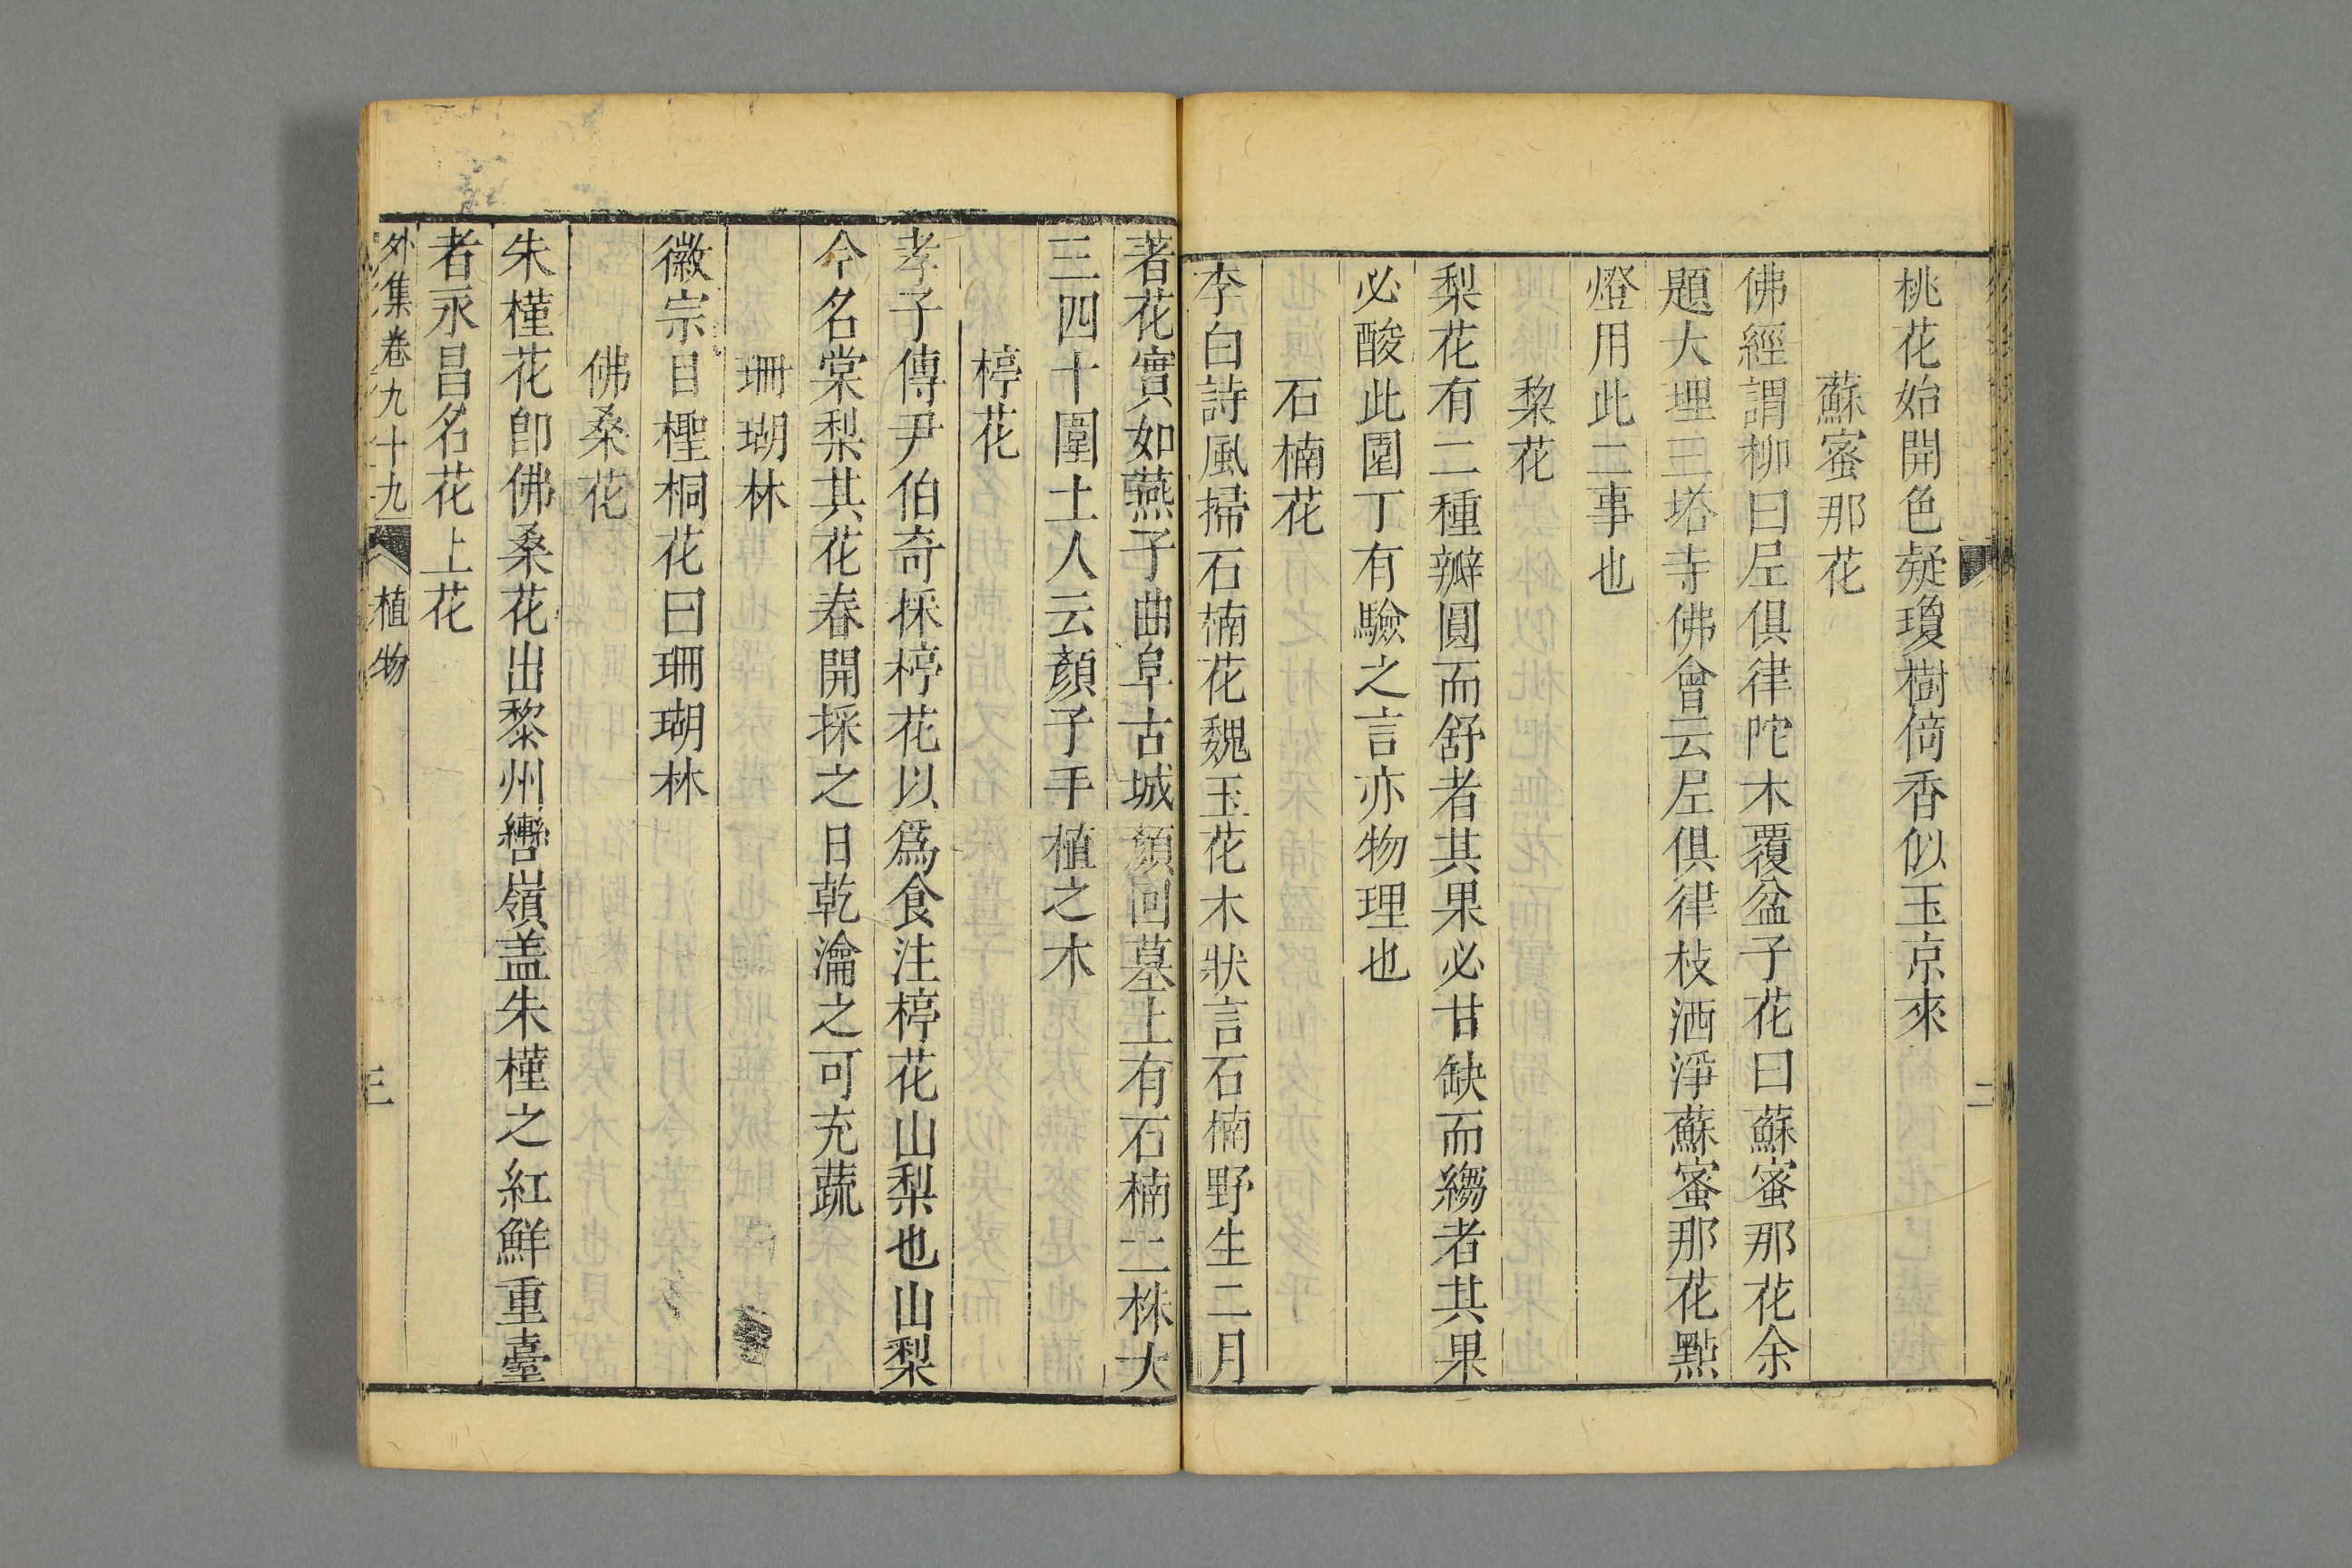 桃花始開色疑瓊樹倚香似玉京來
蘇蜜那花
佛經謂柳曰尼俱律陀木覆盆子花曰蘇蜜那花余
題大理三塔寺佛會云尼俱律枝洒淨蘇蜜那花點
燈用此二事也
梨花
梨花有二種瓣圓而舒者其果必甘缺而縐者其果
必酸此園丁有驗之言亦物理也
石楠花
李白詩風掃石楠花魏王花木狀言石楠野生二月
二
著花實如燕子曲阜古城顏回墓上有石楠二株大
三四十圍土人云顏子手植之木
楟花
孝子傳尹伯奇採楟花以爲食注楟花山梨也山梨
今名棠梨其花春開採之日乾瀹之可充蔬
珊瑚林
徽宗目檉桐花曰珊瑚林
佛桑花
朱槿花卽佛桑花出黎州轡嶺盖朱槿之紅鮮重臺
者永昌名花上花
外集卷九十九 植物 三